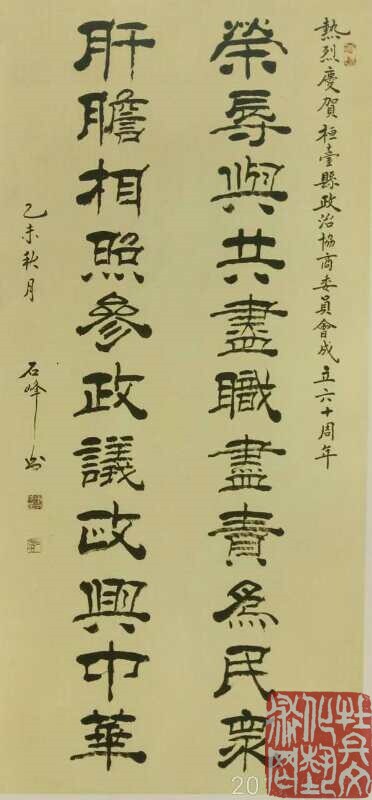 熱烈慶賀桓臺縣政治協商委員會成立六十周年
榮辱與共盡職盡責為民眾
肝膽相照參政議政興中華
乙未秋月
石峰書
201